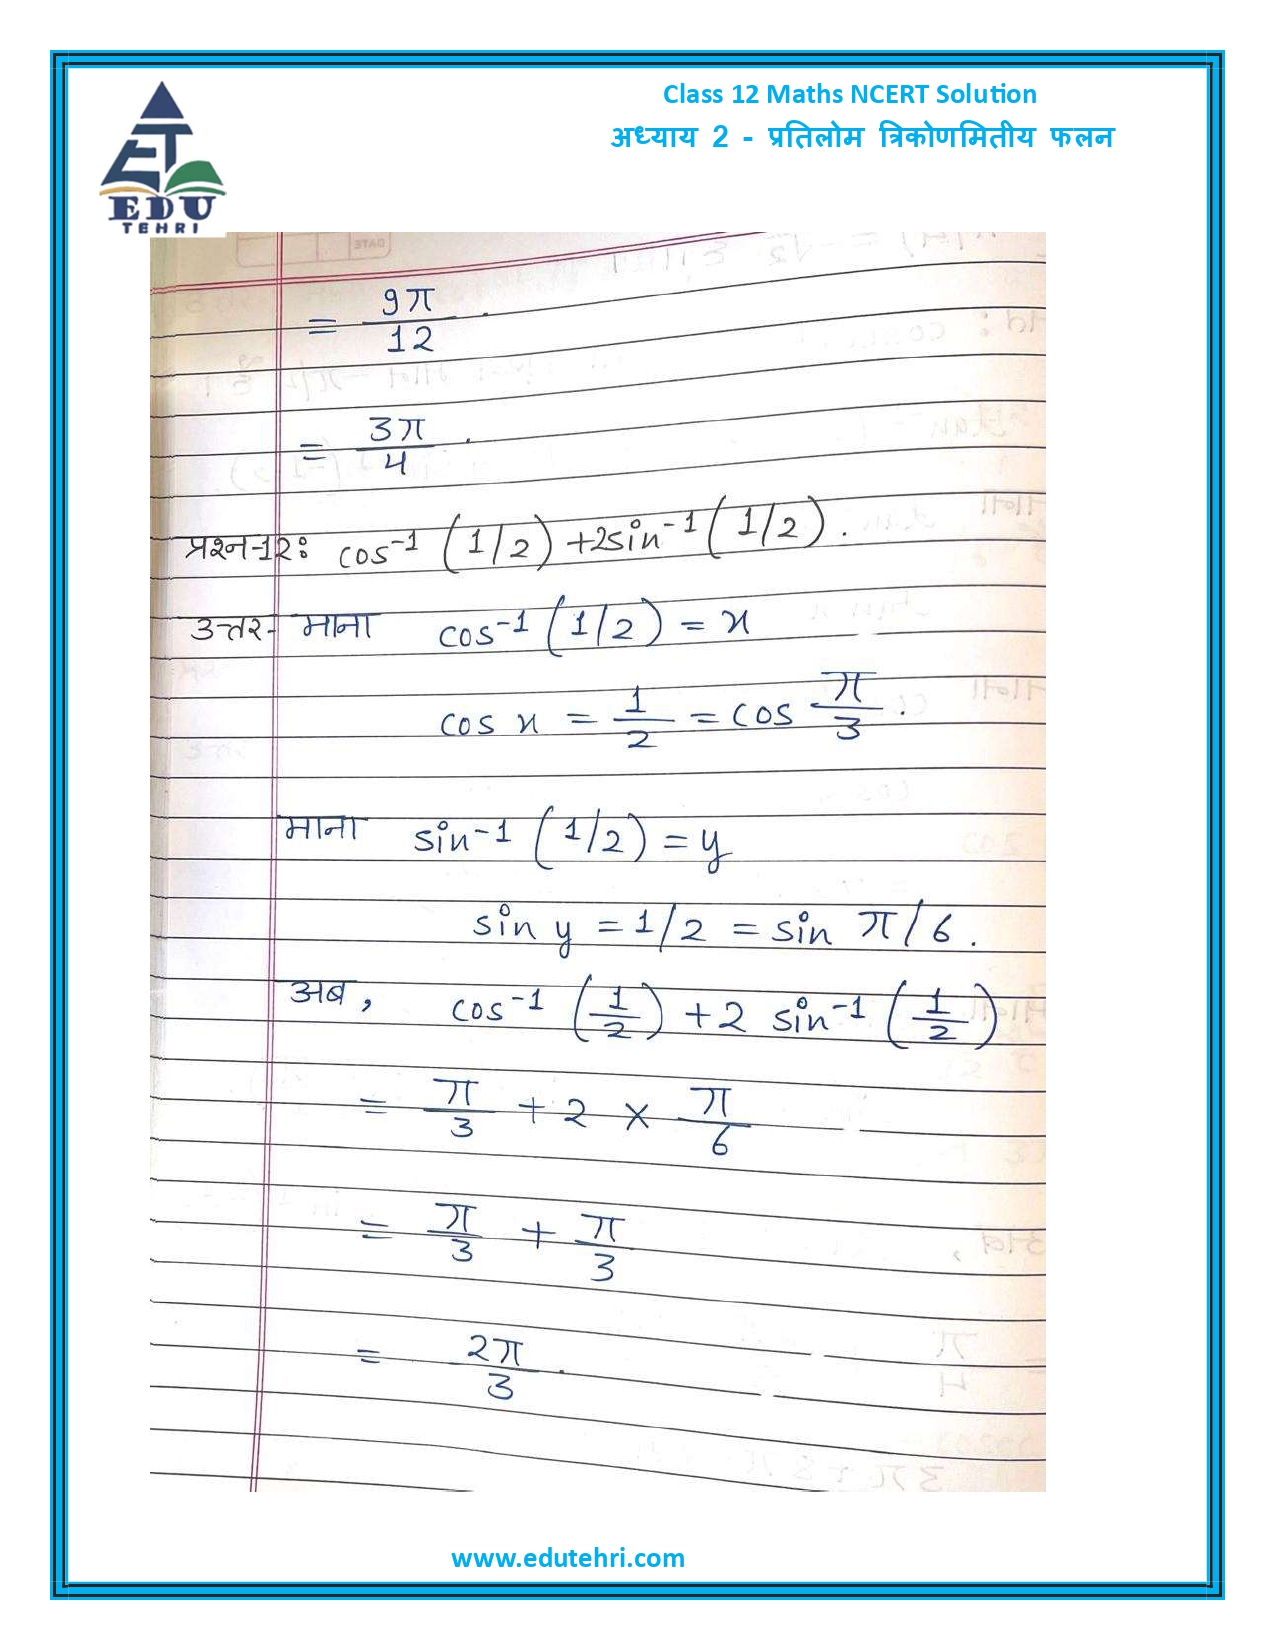 Class 12 Maths NCERT Solution
अध्याय 2 - प्रतिलोम त्रिकोणमितीय फलन
EDU
TEHRI
DATE
= 9π/12.
= 3π/4.
प्रश्न-12: cos⁻¹ (1/2) + 2sin⁻¹ (1/2).
उत्तर- माना cos⁻¹ (1/2) = x
cos x = 1/2 = cos π/3.
माना sin⁻¹ (1/2) = y
sin y = 1/2 = sin π/6.
अब, cos⁻¹ (1/2) + 2 sin⁻¹ (1/2)
= π/3 + 2 × π/6
= π/3 + π/3
= 2π/3.
www.edutehri.com